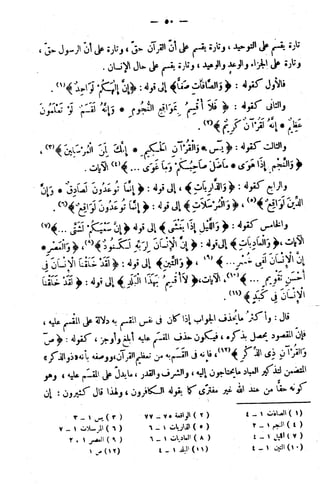 — ٥٠ —
تارة يقسم على التوحيد ، وتارة يقسم على أنّ القرآن حق ، وتارة على أنّ الرسول حقّ ،
وتارة على الجزاء والوعد والوعيد ، وتارة يقسم على حال الإنسان .
فالأول كقوله : ﴿ وَالصَّافَّاتِ صَفًّا ﴾ إلى قوله : ﴿ إِنَّ إِلَهَكُمْ لَوَاحِدٌ ﴾(١) .
والثاني كقوله : ﴿ فَلَا أُقْسِمُ بِمَوَاقِعِ النُّجُومِ * وَإِنَّهُ لَقَسَمٌ لَوْ تَعْلَمُونَ
عَظِيمٌ * إِنَّهُ لَقُرْآنٌ كَرِيمٌ ﴾(٢) .
والثالث كقوله : ﴿ يس * وَالْقُرْآنِ الْحَكِيمِ * إِنَّكَ لَمِنَ الْمُرْسَلِينَ ﴾(٣) ،
﴿ وَالنَّجْمِ إِذَا هَوَى * مَا ضَلَّ صَاحِبُكُمْ وَمَا غَوَى ... ﴾(٤) الآيات .
والرابع كقوله : ﴿ وَالذَّارِيَاتِ ﴾ إلى قوله : ﴿ إِنَّمَا تُوعَدُونَ لَصَادِقٌ * وَإِنَّ
الدِّينَ لَوَاقِعٌ ﴾(٥) ، ﴿ وَالْمُرْسَلَاتِ ﴾ إلى قوله : ﴿ إِنَّمَا تُوعَدُونَ لَوَاقِعٌ ﴾(٦) .
والخامس كقوله : ﴿ وَاللَّيْلِ إِذَا يَغْشَى ﴾ إلى قوله : ﴿ إِنَّ سَعْيَكُمْ لَشَتَّى ... ﴾(٧)
الآيات ، ﴿ وَالْعَادِيَاتِ ﴾ إلى قوله : ﴿ إِنَّ الْإِنْسَانَ لِرَبِّهِ لَكَنُودٌ ﴾(٨) ، ﴿ وَالْعَصْرِ *
إِنَّ الْإِنْسَانَ لَفِي خُسْرٍ ... ﴾(٩) ، ﴿ وَالتِّينِ ﴾ إلى قوله : ﴿ لَقَدْ خَلَقْنَا الْإِنْسَانَ فِي
أَحْسَنِ تَقْوِيمٍ ... ﴾(١٠) الآيات ، ﴿ لَا أُقْسِمُ بِهَذَا الْبَلَدِ ﴾ إلى قوله : ﴿ لَقَدْ خَلَقْنَا
الْإِنْسَانَ فِي كَبَدٍ ﴾(١١) .
قال : وأكثر ما يحذف الجواب إذا كان في نفس المقسم به دلالة على المقسم عليه ،
فإنّ المقصود يحصل بذكره ، فيكون حذف المقسم عليه أبلغ وأوجز ، كقوله : ﴿ صَ
وَالْقُرْآنِ ذِي الذِّكْرِ ﴾(١٢) ، فإنه في القسم به من تعظيم القرآن ووصفه بأنه «ذو الذكر»
المتضمن لتذكير العباد ما يحتاجون إليه ، والشرف والقدر ، ما يدلّ على المقسم عليه ، وهو
كونه حقًّا من عند الله غير مفترى كما يقوله الكافرون ، ولهذا قال كثيرون : إن
(١) الصافات ١ - ٤ (٢) الواقعة ٧٥ - ٧٧ (٣) يس ١ - ٣
(٤) النجم ١ - ٢ (٥) الذاريات ١ - ٦ (٦) المرسلات ١ - ٧
(٧) الليل ١ - ٤ (٨) العاديات ١ - ٦ (٩) العصر ١ ، ٢
(١٠) التين ١ - ٤ (١١) البلد ١ - ٤ (١٢) ص ١